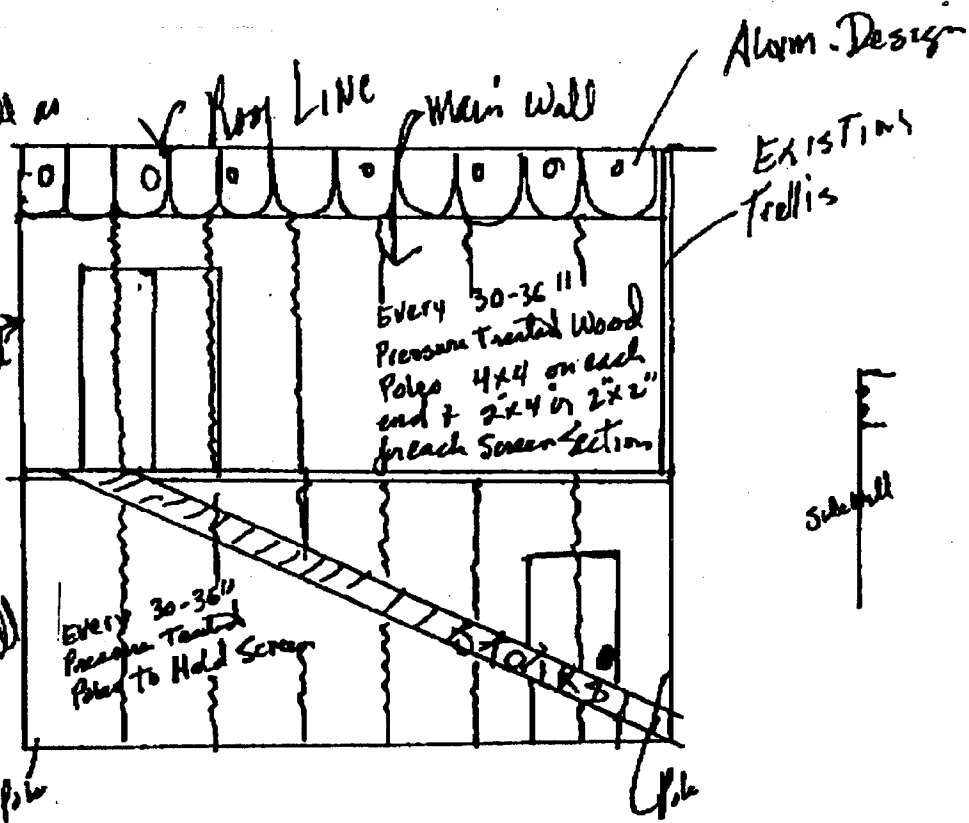 Alum. Design
Roof LINE
Main Wall
ExisTing
Trellis
Every 30-36"
Pressure Treated Wood
Poles 4x4 on each
end + 2"x4 or 2"x2"
for each Screen Section
Sidewall
Every 30-36"
Pressure Treated
Poles to Hold Screen
Stairs
Pole
Pole